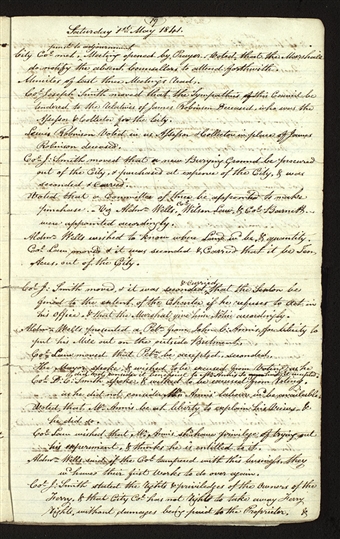 19
Saturday 1st May 1841.
pursuant to adjournment
City Col. met. Meeting opened by Prayer. Voted, that the Marshall
do notify the absent Counsellors to attend forthwith.
Minutes of last three Meetings read.
Col. Joseph Smith moved that the Sympathies of this Council be
tendered to the Relatives of James Robinson Deceased, who was the
Assessor & Collector for the City.
Lewis Robinson Voted in as Assessor & Collector in place of James
Robinson deceased.
Col. J. Smith moved that a new Burying Ground be procured
out of the City, & purchased at expense of the City, & was
seconded & carried.
Voted that a Committee of three be appointed to make
purchase. Viz Alder. Wells, Wilson Law, & Col. Barnett
were appointed accordingly.
Alder. Wells wished to know where Land is to be, & quantity.
Col. Law moved & it was seconded & Carried that it be Ten
Acres out of the City.
carried
Col. J. Smith moved, & it was seconded, that the Sexton be
fined to the extent of the Charter if he refuses to Act in
his Office, & that the Marshal give him Notice accordingly.
Alder. Wells presented a Petn. from John C. Annis, for Liberty to
put his Mill out on the outside
Col. Law moved that Petn. be accepted, seconded.
The Mayor spoke & wished to be excused from Voting, as he
did not consider
Col. D. C. Smith spoke & wished to be excused from Voting,
as he did not consider Mr. Annis's
Voted, that Mr. Annis be at liberty to explain his Views, &
he did so.
Col. Law wished that Mr. Annis should have privilege of trying out
his experiment, & thinks he is entitled to it.
Alder. Wells said, if the Col. tampered with this business, they
would have their first works to do over again.
Col. J. Smith stated the Rights & privileges of the Owners of the
Ferry, & that City Col. has not Right to take away Ferry
Right, without damages being paid to the Proprietor. &